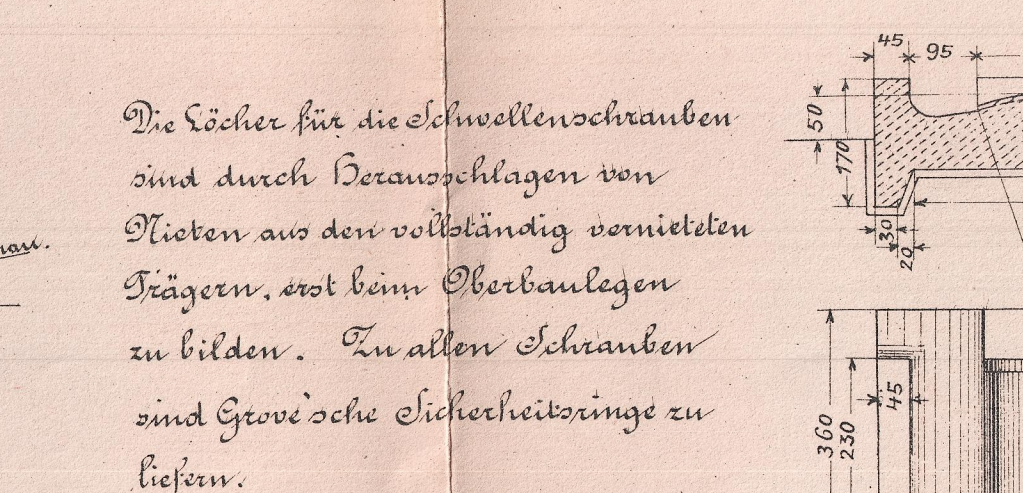 Die Löcher für die Schwellenschrauben
sind durch Herausschlagen von
Nieten aus den vollständig vernieteten
Trägern, erst beim Oberbaulegen
zu bilden. Zu allen Schrauben
sind Grove'sche Sicherheitsringe zu
liefern.
45 95
50
170
30
20
45
360
230